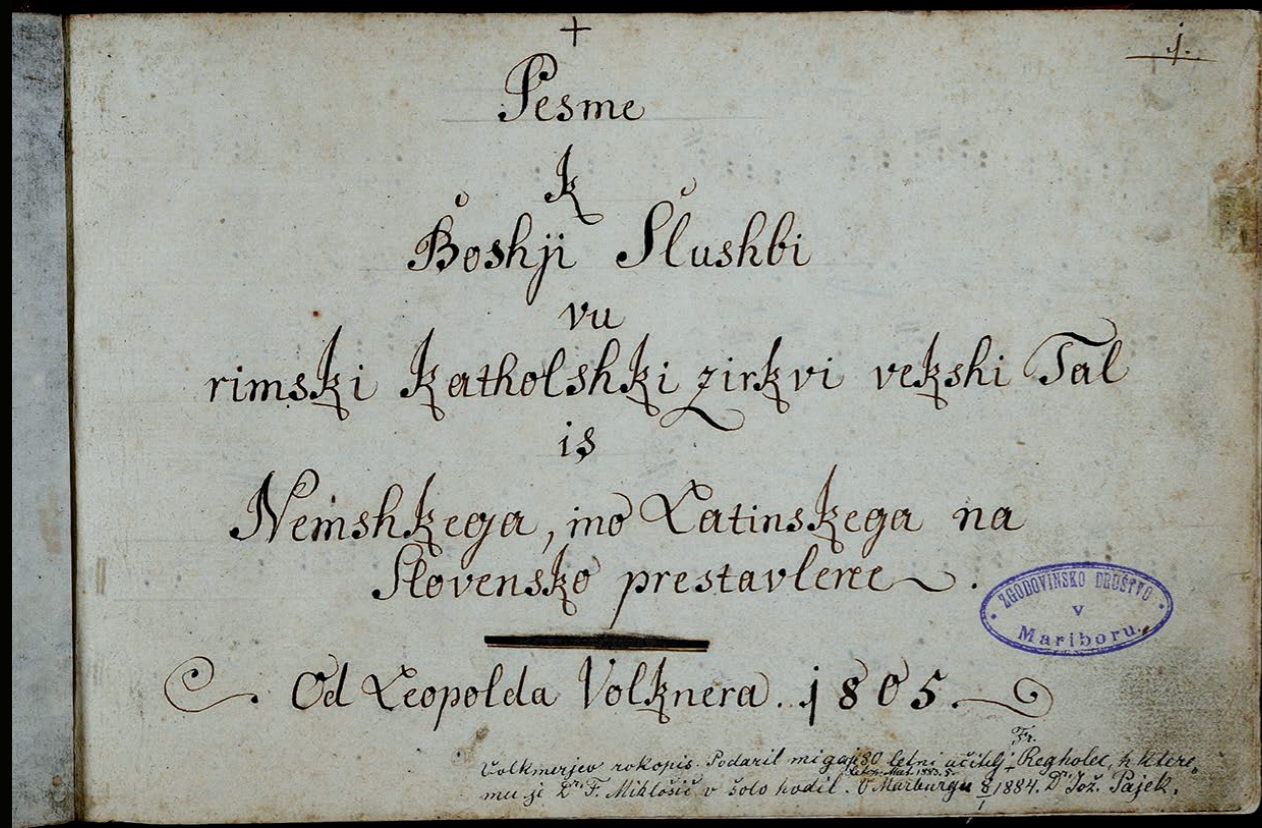 +
1.
Pesme
k
Boshji Slushbi
vu
rimski katholshki zirkvi vekshi Tal
is
Nemshkega, ino Latinskega na
Slovensko prestavlene.
ZGODOVINSKO DRUŠTVO
v
Mariboru.
Od Leopolda Volknera. 1805.
Volkmerjev rokopis. Podaril mi ga je 80 letni učitelj Fr. Regholec, h ktere,
mu je Dr. F. Miklošič v šolo hodil. V Marburgu 8/1 1884. Dr. Jož. Pajek.